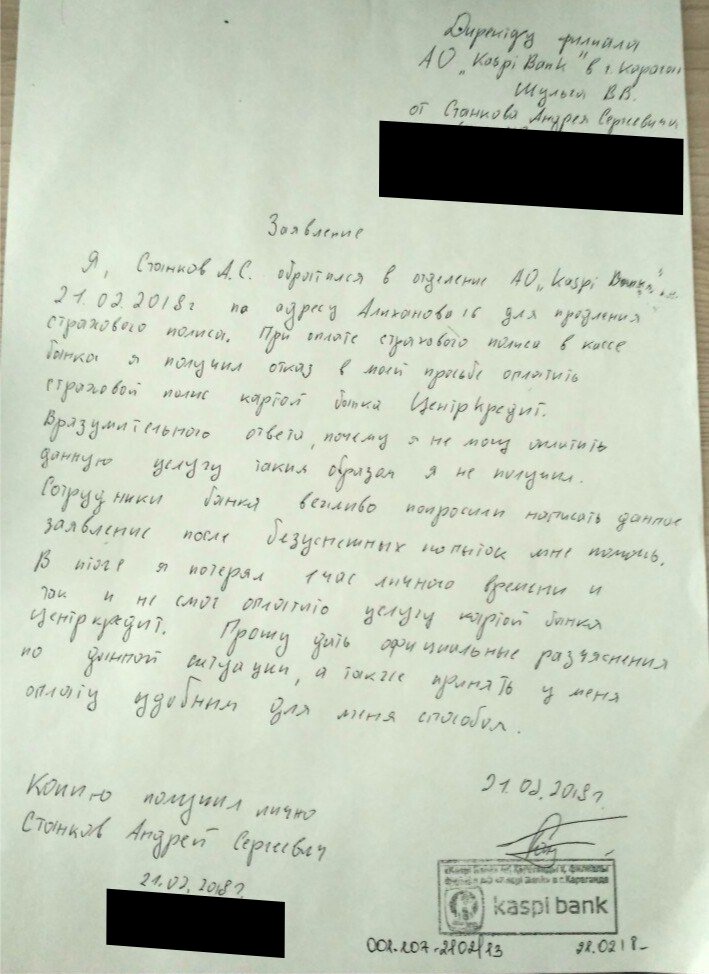 Директору филиала
АО "Kaspi Bank" в г. Караган
Шульга В.В.
от Станкова Андрея Сергеевича
Заявление
Я, Станков А.С. обратился в отделение АО "Kaspi Банк"
21.02.2018г по адресу Алиханова 16 для продления
страхового полиса. При оплате страхового полиса в кассе
банка я получил отказ в моей просьбе оплатить
страховой полис картой банка ЦентрКредит.
Врязумительного ответа, почему я не могу оплатить
данную услугу таким образом я не получил.
Сотрудники банка вежливо попросили написать данное
заявление после безуспешных попыток мне помочь.
В итоге я потерял 1 час личного времени и
так и не смог оплатить услугу картой банка
Центркредит. Прошу дать официальные разъяснения
по данной ситуации, а также принять у меня
оплату удобным для меня способом.
21.02.2018г.
Копию получил лично
Станков Андрей Сергеевич
21.02.2018г.
«Kaspi Bank» АҚ Қарағанды қ. филиалы
Филиал АО «Kaspi Bank» в г. Караганда
kaspi bank
002.207-2102/13